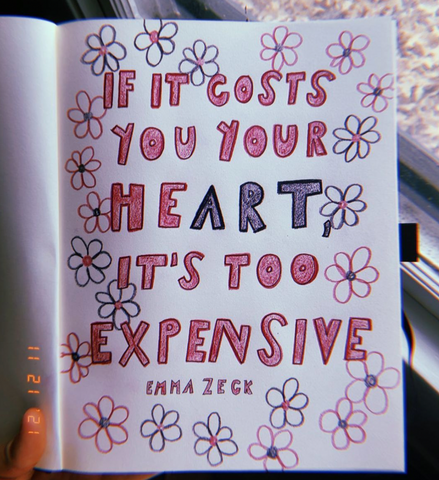 IF IT COSTS
YOU YOUR
HEART,
IT'S TOO
EXPENSIVE
EMMA ZECK
12 12 11